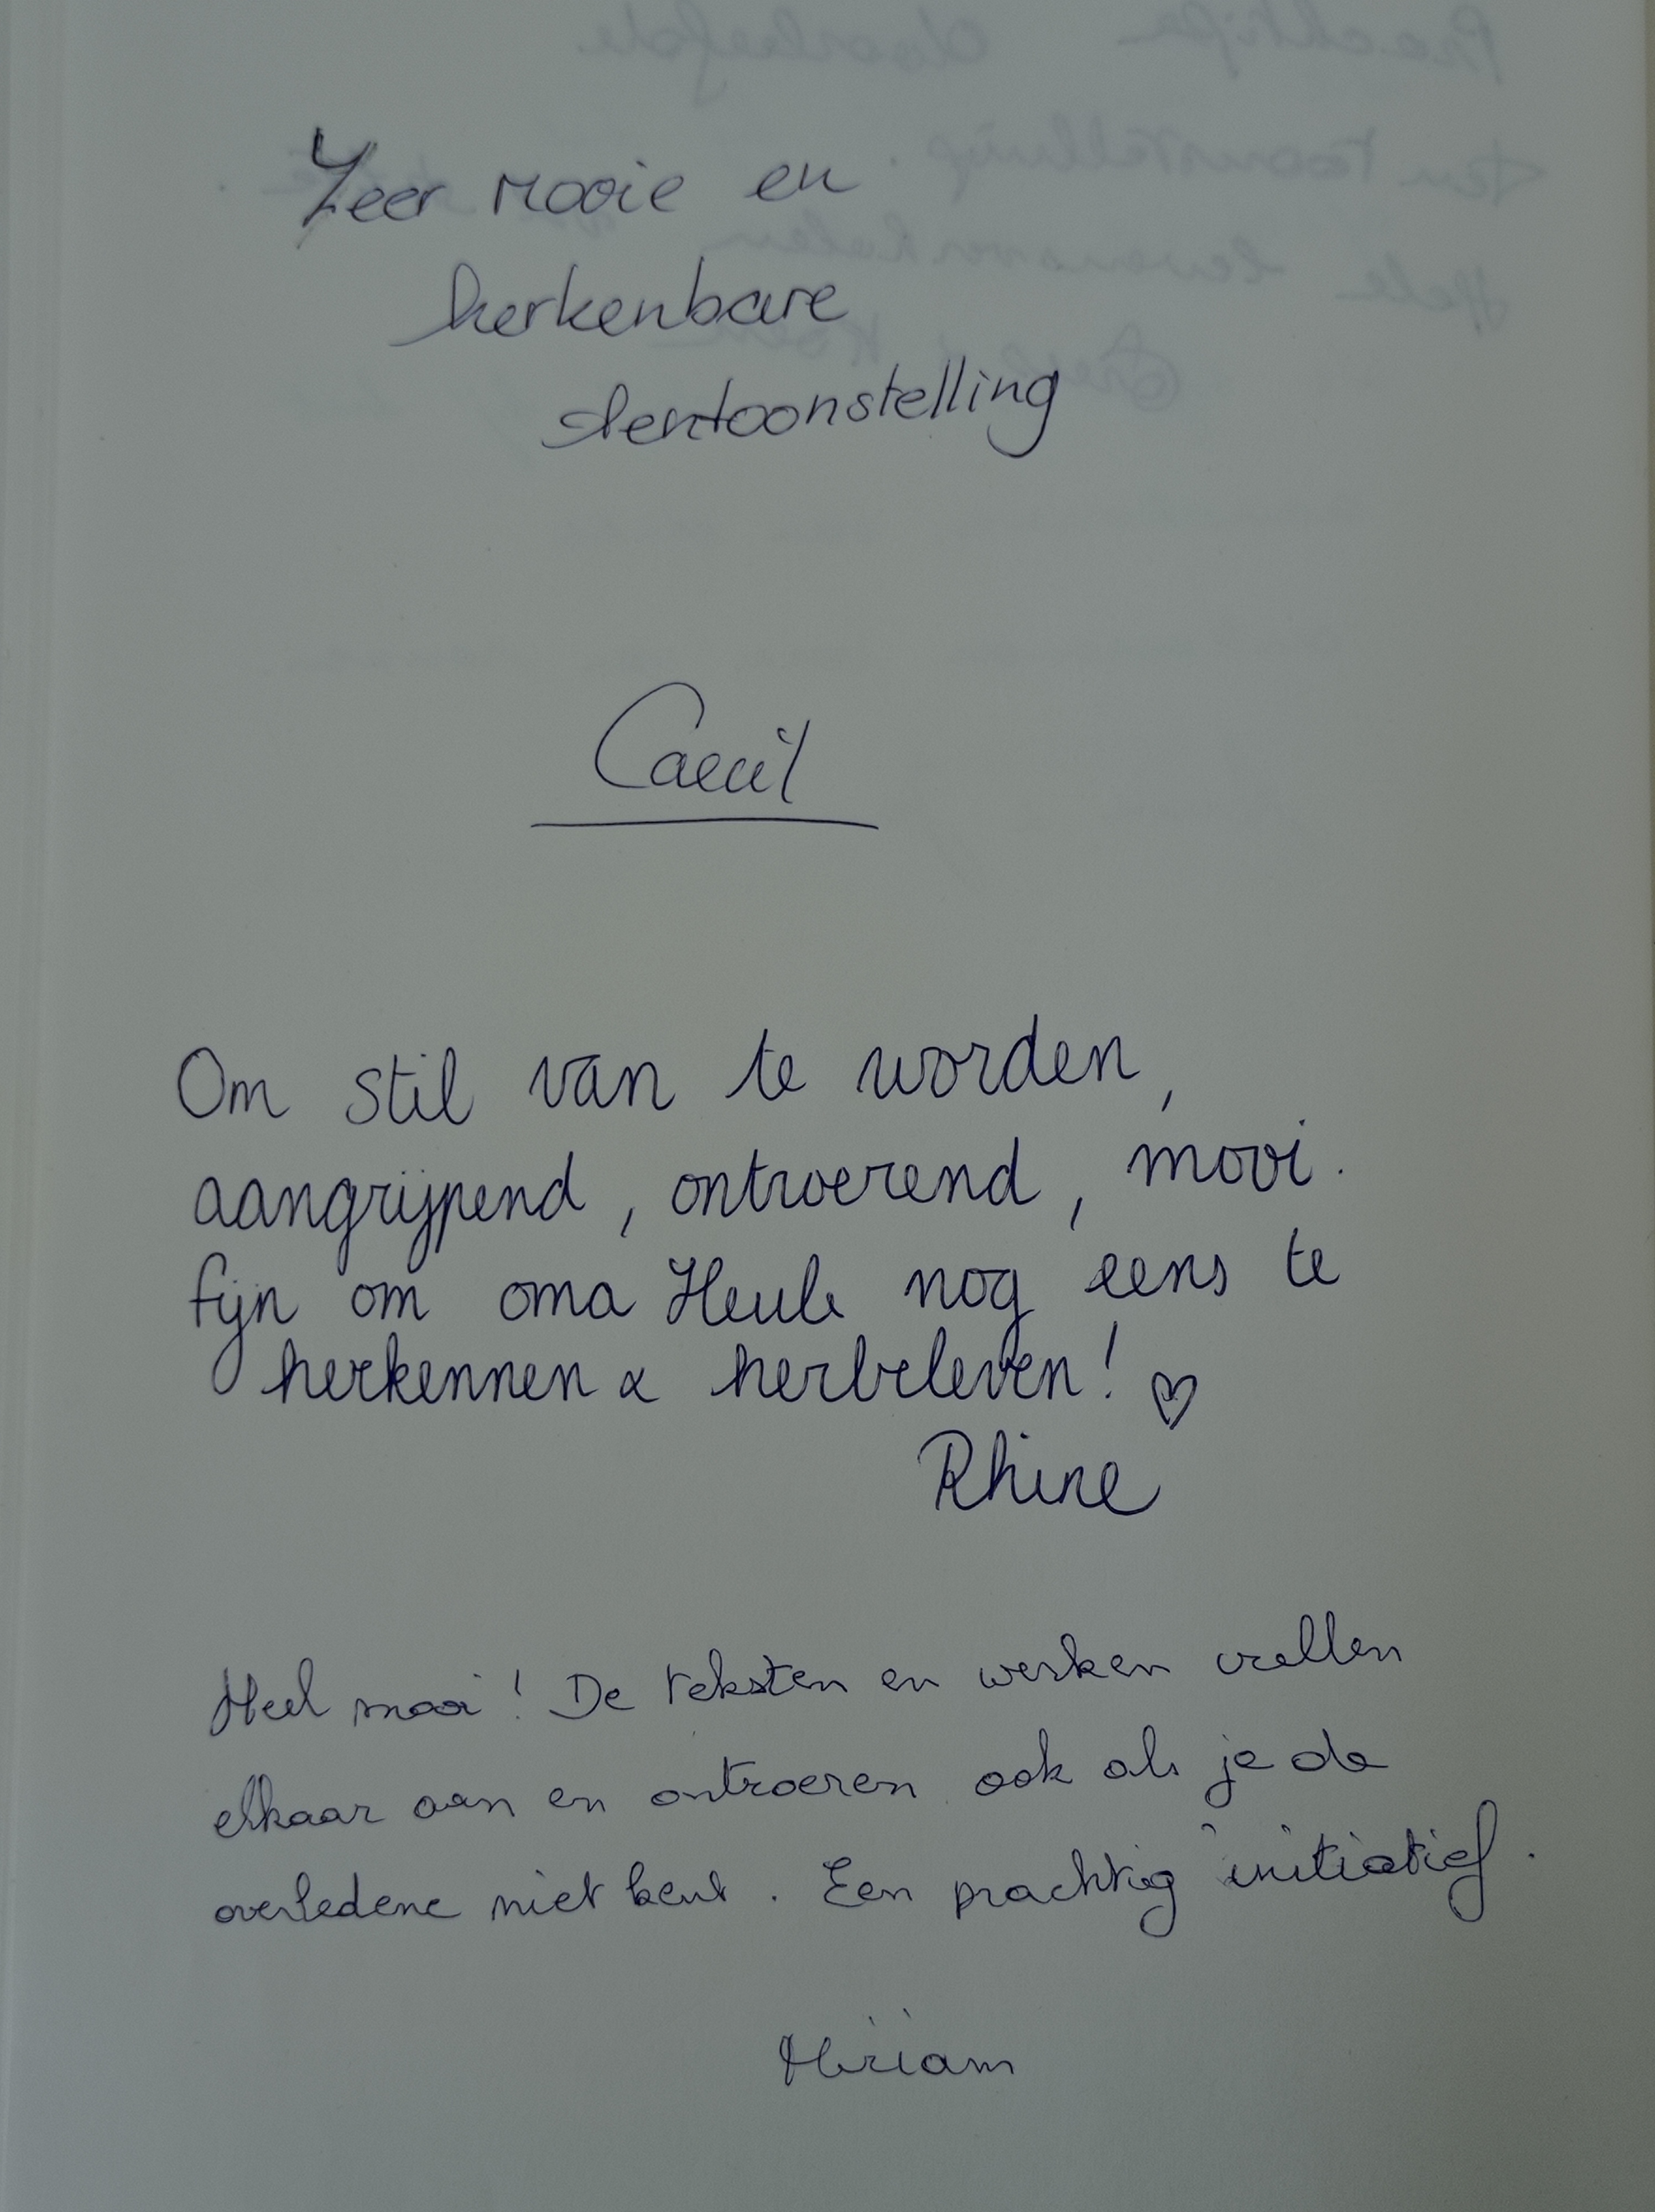 Zeer mooie en
herkenbare
tentoonstelling
Caecil
Om stil van te worden,
aangrijpend, ontroerend, mooi.
fijn om oma Heule nog eens te
herkennen & herbeleven! ♡
Rhine
Heel mooi! De teksten en werken vullen
elkaar aan en ontroeren ook als je de
overledene niet kent. Een prachtig initiatief.
Miriam